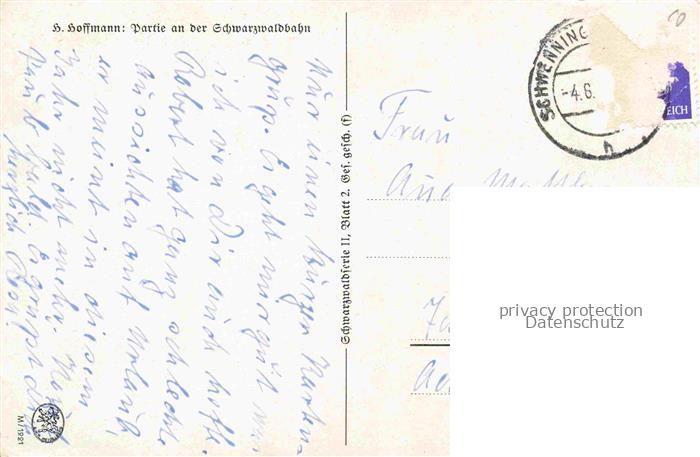 H. Hoffmann: Partie an der Schwarzwaldbahn
Nur einen kurzen Karten-
gruß. Es geht mir gut was
ich von Dir auch hoffe.
Robert hat ganz schlechte
Aussichten auf Urlaub,
er meint in diesem
Jahr nicht mehr.
bald. Es grüßt Dich
herzlich
M/1921
Schwarzwaldserie II, Blatt 2. Ges. gesch. (f)
SCHWENNING
-4.6.
h
EICH
Frau
privacy protection
Datenschutz